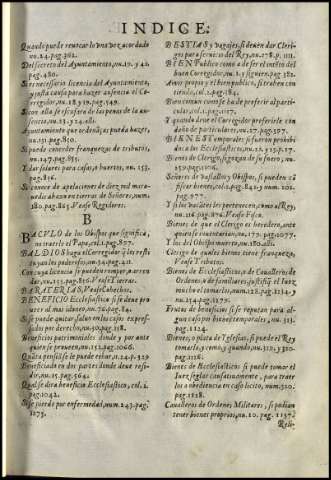 INDICE.
Quando puede revocar lo una vez acordado
nu.24.pag.382.
Del secreto del Ayuntamiento, nu.19. y 42.
pag.480.
Si es necessario licencia del Ayuntamiento,
y justa causa para hazer ausencia el Co-
rregidor, nu.18. y 19. pag.549.
nu.23. y 24.
Ayuntamiento que ordenãças pueda hazer,
nu.15. pag.850.
Si puede conceder franquezas de tributos,
nu.147. pag.855.
Y dar solares para casas, o huertas, nu.153.
pag.856.
Si conoce de apelaciones de diez mil mara-
uedis abaxo en tierras de Señores, num.
180. pag.865. Vease Regidores.
B
BACVLO de los Obispos que significa,
no trae le el Papa, col.1. pag.807.
BALDIOS haga el Corregidor q̃ les resti-
tuyan los poderosos, num.34. pag.42.
Con cuya licencia se pueden romper, o arren-
dar, nu.133. pag.856. Vease Tierras.
BARATERIAS, Vease Cohechos.
BENEFICIO Ecclesiastico si se deue pro-
ueer al mas idoneo, nu.76. pag.84.
Si se puede quitar, salvo en los casos expres-
sados por derecho, nu.50. pag.118.
Beneficios patrimoniales donde y por ante
quien se prouean, nu.155. pag.1066.
Beneficiado en dos partes donde deue resi-
dir, nu.15. pag.564.
Qual se dira beneficio Ecclesiastico, col.1.
pag.1042.
Si se puede por enfermedad, num.243. pag.
1073.
BESTIAS y bagajes, si deuen dar Cleri-
gos para seruicio del Rey, nu.178. p. 1111.
BIEN Publico como a de ser el intento del
buen Corregidor, nu.1. y siguien. pag.382.
Al bien proprio y el bien publico, si traben con-
tienda, col.2. pag.184.
Bien comun como se ha de preferir al parti-
cular, col.2. pag.117.
Y quando deue el Corregidor preferirle con
daño de particulares, nu.57. pag.597.
BIENES temporales, si fueron prohibi-
dos a los Ecclesiasticos, nu.22. pag.557.
Bienes de Clerigo, si gozan de su fuero, nu.
159. pag.1106.
Señores de vassallos y Obispos, si pueden cõ-
fiscar bienes, col.2. pag.842. y num. 102.
pag.977.
Y si los vacãtes les pertenecen, como al Rey,
nu.116. pag.876. Vease Fisco.
Bienes de que el Clerigo es heredero, ante
quien se inuentarian, nu.172. pag.1077.
Y los del Obispo muerto, nu.180. alli.
Clerigo de quales bienes tiene franqueza,
Vease Tributos.
Bienes de Ecclesiasticos, o de Caualleros de
Ordenes, o de familiares, si justifica el Iuez
nu.254. pag.1279.
Frutos de beneficios si se reputan por al-
gun caso por bienes temporales, nu. 313.
pag.1124.
Bienes, o plata de Yglesias, si puede el Rey
tomarlo, y como, y quando, nu.310. y 319.
pag.1126.
Bienes de Ecclesiasticos si puede tomar el
Iuez seglar causatiuamente, para traer-
los a obediencia en caso licito, num.320.
pag.1128.
Caualleros de Ordenes Militares, si podian
tener bienes proprios, nu.10. pag. 1137.
Relig